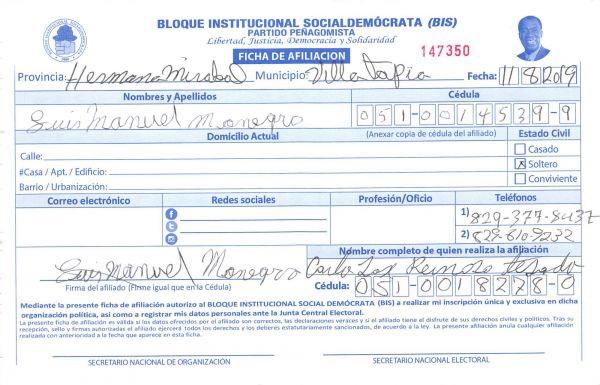 BLOQUE INSTITUCIONAL SOCIALDEMÓCRATA (BIS)
PARTIDO PEÑAGOMISTA
Libertad, Justicia, Democracia y Solidaridad
FICHA DE AFILIACION 147350
Provincia: Hermana Mirabal Municipio: Villa Tapia Fecha: 11/8/2019
Nombres y Apellidos Cédula
Luis Manuel Monegro 051-0014539-9
Domicilio Actual (Anexar copia de cédula del afiliado) Estado Civil
Calle: Casado
#Casa / Apt. / Edificio: X Soltero
Barrio / Urbanización: Conviviente
Correo electrónico Redes sociales Profesión/Oficio Teléfonos
1) 829-377-8437
2) 829-610-9232
Nombre completo de quien realiza la afiliación
Luis Manuel Monegro Carlo Reinoso
Firma del afiliado (Firme igual que en la Cédula) Cédula: 051-0018278-0
Mediante la presente ficha de afiliación autorizo al BLOQUE INSTITUCIONAL SOCIAL DEMÓCRATA (BIS) a realizar mi inscripción única y exclusiva en dicha
organización política, así como a registrar mis datos personales ante la Junta Central Electoral.
La presente ficha de afiliación es válida si los datos ofrecidos por el afiliado son correctos, las declaraciones veraces y si el afiliado tiene el disfrute de sus derechos civiles y políticos. Tras su
recepción, sello y firmas autorizadas el afiliado ejercerá todos los derechos y los deberes estatutariamente sancionados, de acuerdo a la ley. La presente afiliación anula cualquier afiliación
realizada con anterioridad a la fecha que aparece en esta ficha.
SECRETARIO NACIONAL DE ORGANIZACIÓN SECRETARIO NACIONAL ELECTORAL